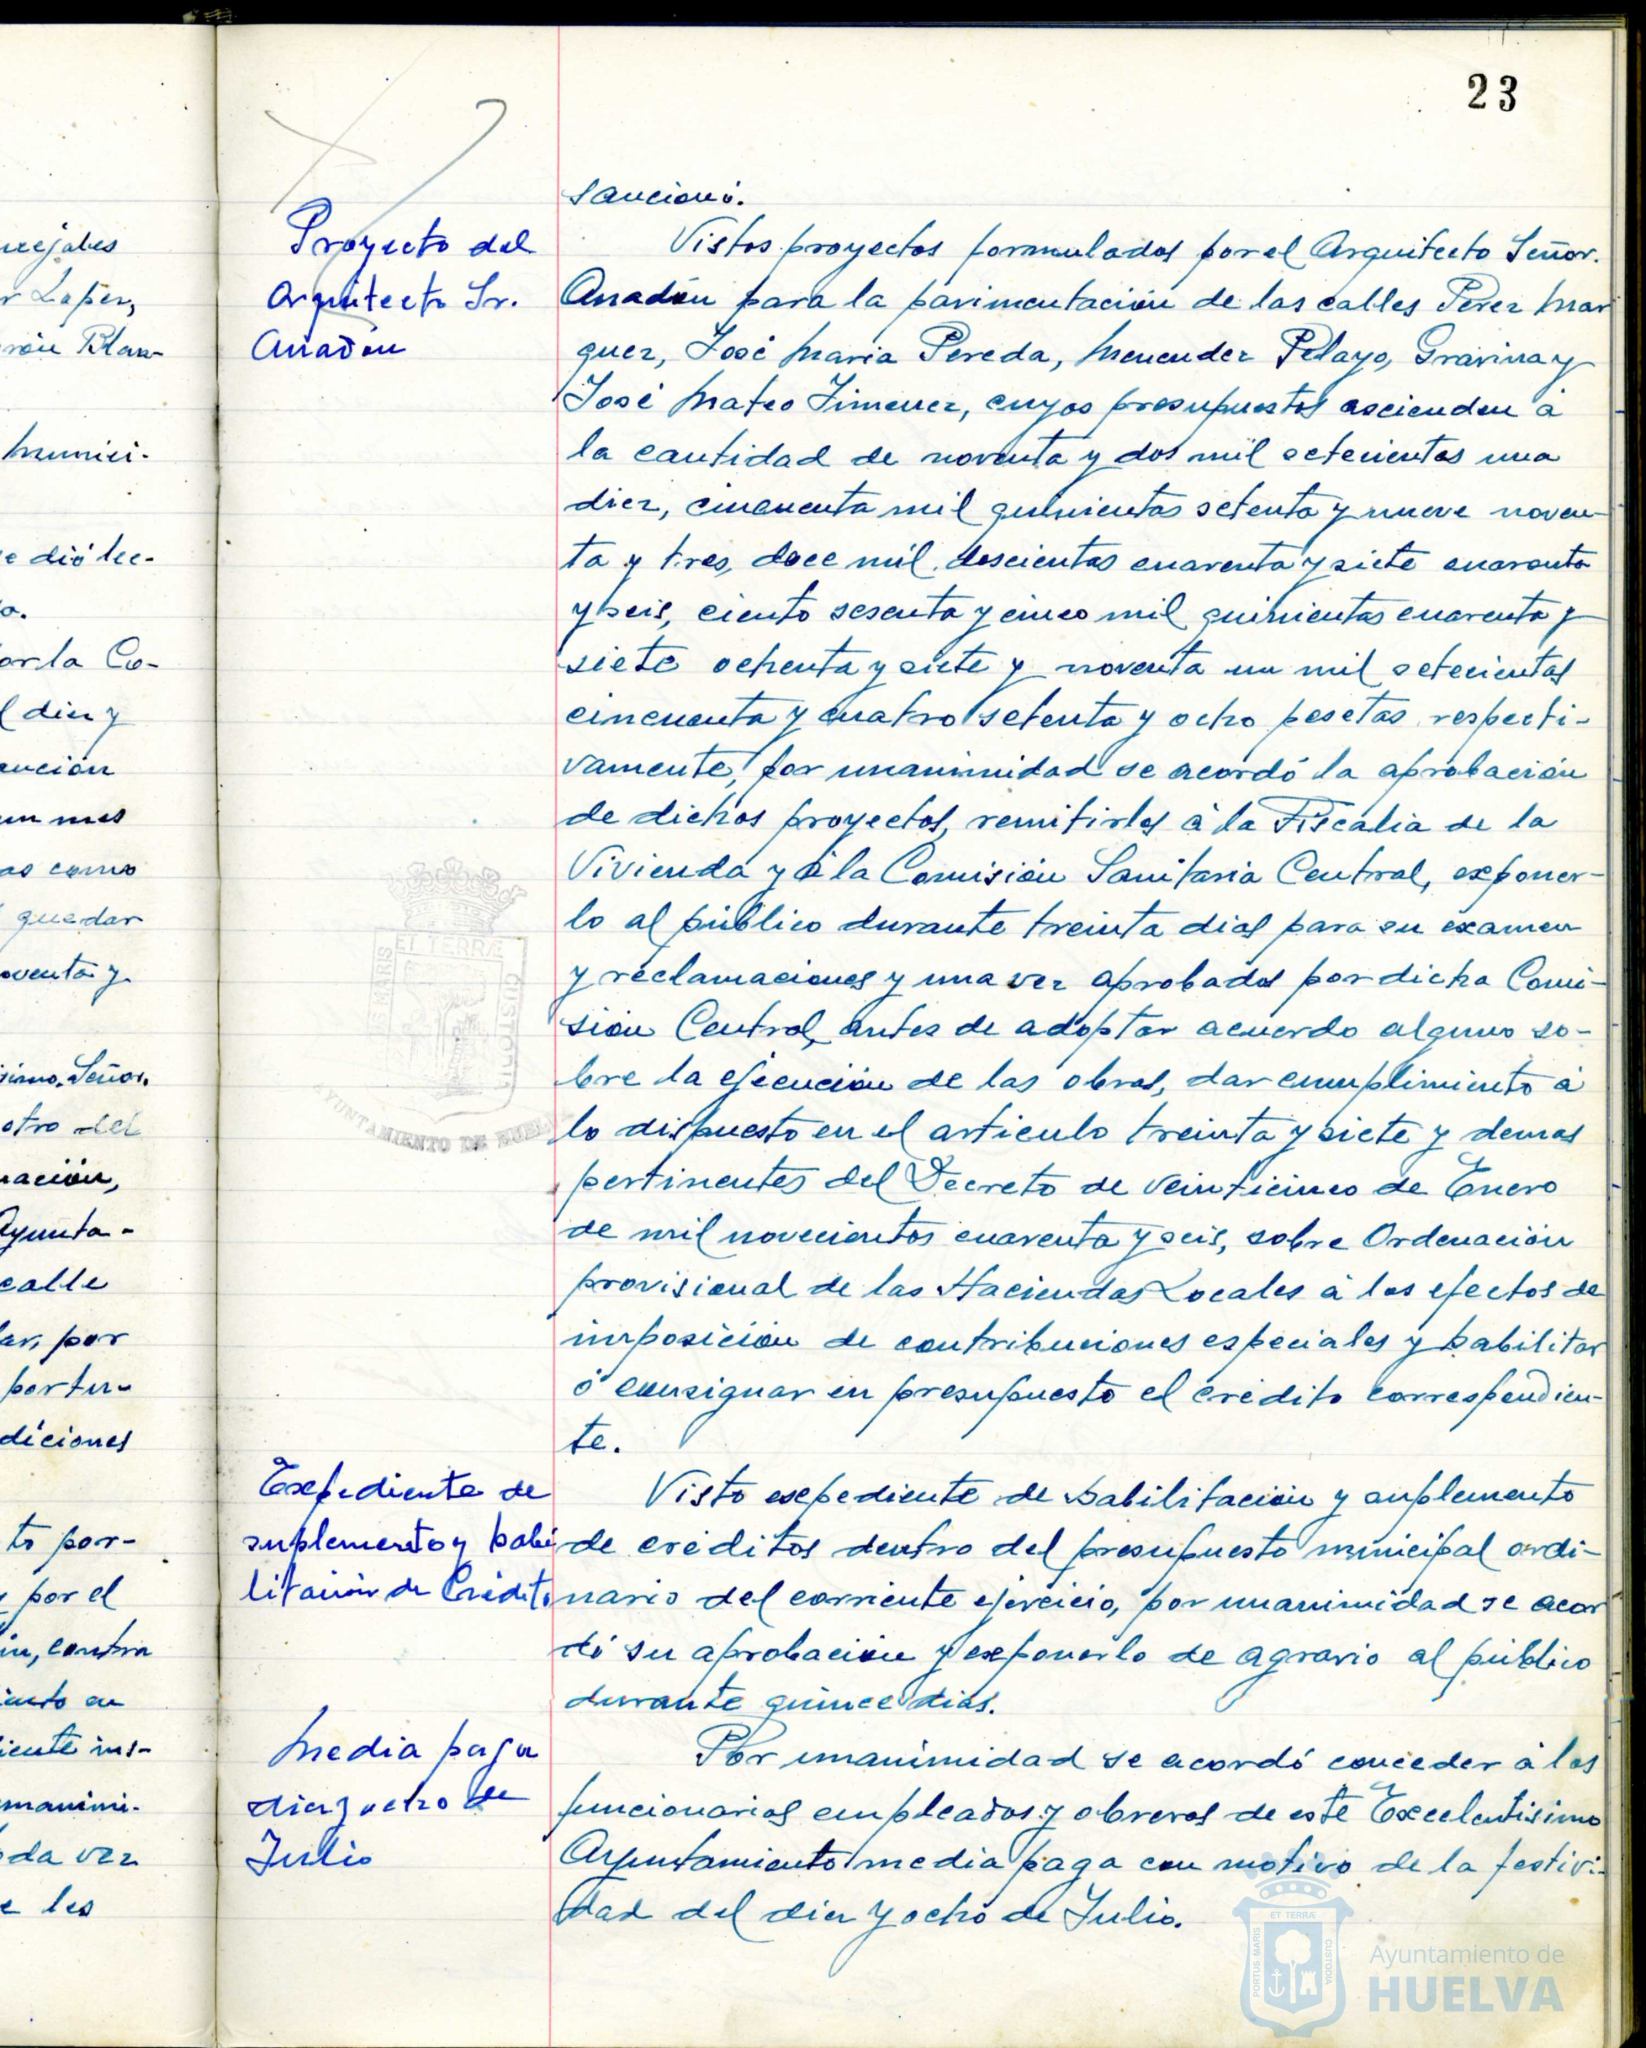 23
ncejales
r Lopez,
rón Blan-
munici-
e dió lec-
o.
or la Co-
l diez y
ención
un mes
as como
quedar
oventa y
ísimo. Señor.
otro del
nación,
Ayunta-
calle
lar, por
portu-
diciones
to por-
y por el
in, contra
iento en
iente ins-
manimi-
oda vez
e los
Proyecto del
Arquitecto Sr.
Anadón
sancionó.
Vistos proyectos formulados por el Arquitecto Señor.
Anadón para la pavimentación de las calles Perez Mar
quez, José Maria Pereda, Menendez Pelayo, Gravina y
José Mateo Jimenez, cuyos presupuestos ascienden á
la cantidad de noventa y dos mil setecientas una
diez, cincuenta mil quinientas setenta y nueve noven-
ta y tres, doce mil doscientas cuarenta y siete cuarenta
y seis, ciento sesenta y cinco mil quinientas cuarenta y
siete ochenta y siete y noventa un mil setecientas
cincuenta y cuatro setenta y ocho pesetas respecti-
vamente, por unanimidad se acordó la aprobación
de dichos proyectos, remitirlos á la Fiscalia de la
Vivienda y á la Comisión Sanitaria Central, exponer-
lo al público durante treinta dias para su examen
y reclamaciones y una vez aprobados por dicha Comi-
sión Central, antes de adoptar acuerdo alguno so-
bre la ejecución de las obras, dar cumplimiento á
lo dispuesto en el articulo treinta y siete y demas
pertinentes del Decreto de veinticinco de Enero
de mil novecientos cuarenta y seis, sobre Ordenación
provisional de las Haciendas Locales á los efectos de
imposición de contribuciones especiales y habilitar
ó consignar en presupuesto el crédito correspondien-
te.
Expediente de
suplemento y habi
litación de Crédito
Visto expediente de habilitación y suplemento
de créditos dentro del presupuesto municipal ordi-
nario del corriente ejercicio, por unanimidad se acor
dó su aprobación y exponerlo de agravio al público
durante quince dias.
Media paga
diez y ocho de
Julio
Por unanimidad se acordó conceder á los
funcionarios empleados y obreros de este Excelentisimo
Ayuntamiento media paga con motivo de la festivi-
dad del diez y ocho de Julio.
ET TERRÆ
MARIS
CUSTODIA
AYUNTAMIENTO DE HUELVA
ET TERRÆ
PORTUS MARIS
CUSTODIA
Ayuntamiento de
HUELVA